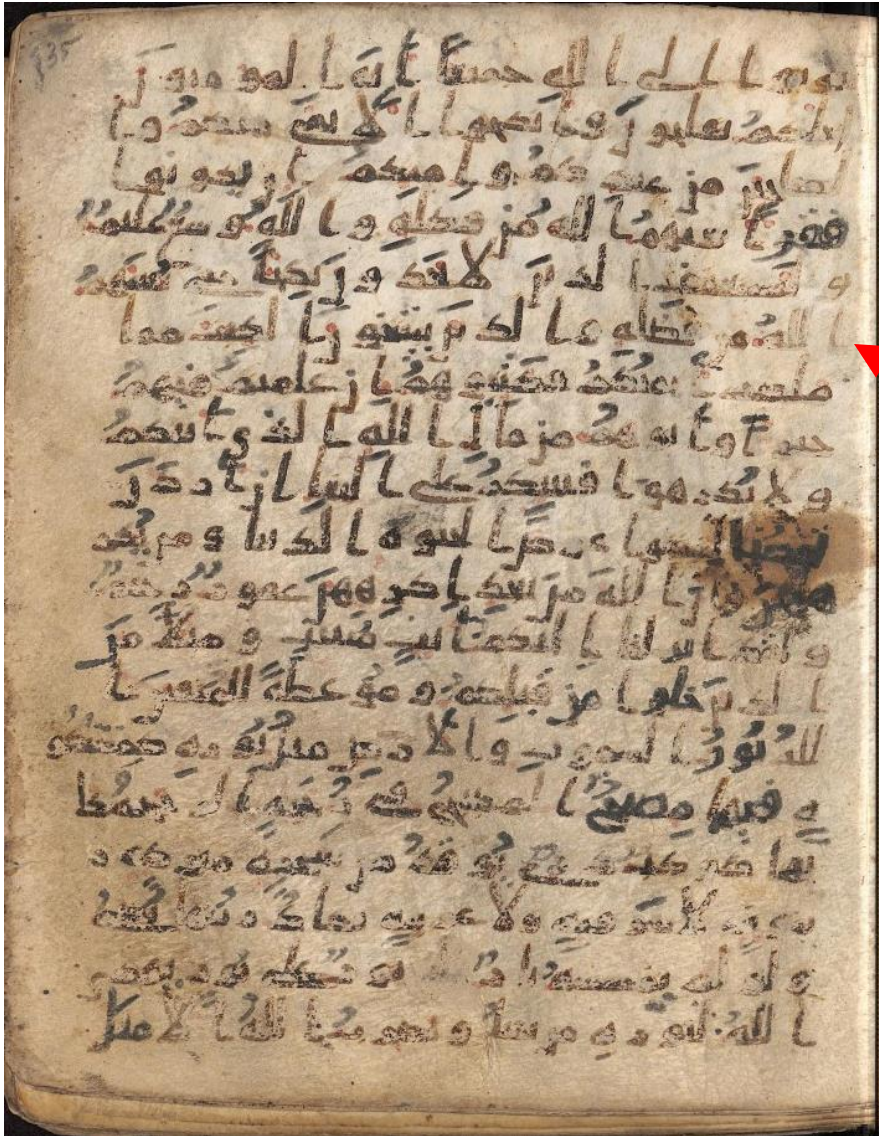 135
توبوا الى الله جميعا ايه المومنون
لعلكم تفلحون وانكحوا الايمى منكم وا
لصلحين من عبدكم وامىكم ان يكونوا
فقرا يغنهم الله من فضله والله وسع عليم
وليستعفف الذين لا يجدون نكحا حتى يغنيهم
الله من فضله والذين يبتغون الكتب مما
ملكت ايمنكم فكتبوهم ان علمتم فيهم
خيرا واتوهم من مال الله الذي اتىكم
ولا تكرهوا فتيتكم على البغا ان اردن
تحصنا لتبتغوا عرض الحيوة الدنيا ومن يكر
ههن فان الله من بعد اكرههن غفور رحيم
ولقد انزلنا اليكم ايت مبينت ومثلا من
الذين خلوا من قبلكم وموعظة للمتقين ا
لله نور السموت والارض مثل نوره كمشكو
ة فيها مصبح المصبح في زجاجة الزجاجة كا
نها كوكب دري يوقد من شجرة مبركة ز
يتونة لا شرقية ولا غربية يكاد زيتها يضي
ولو لم تمسسه نار نور على نور يهدي
الله لنوره من يشا ويضرب الله الامثل